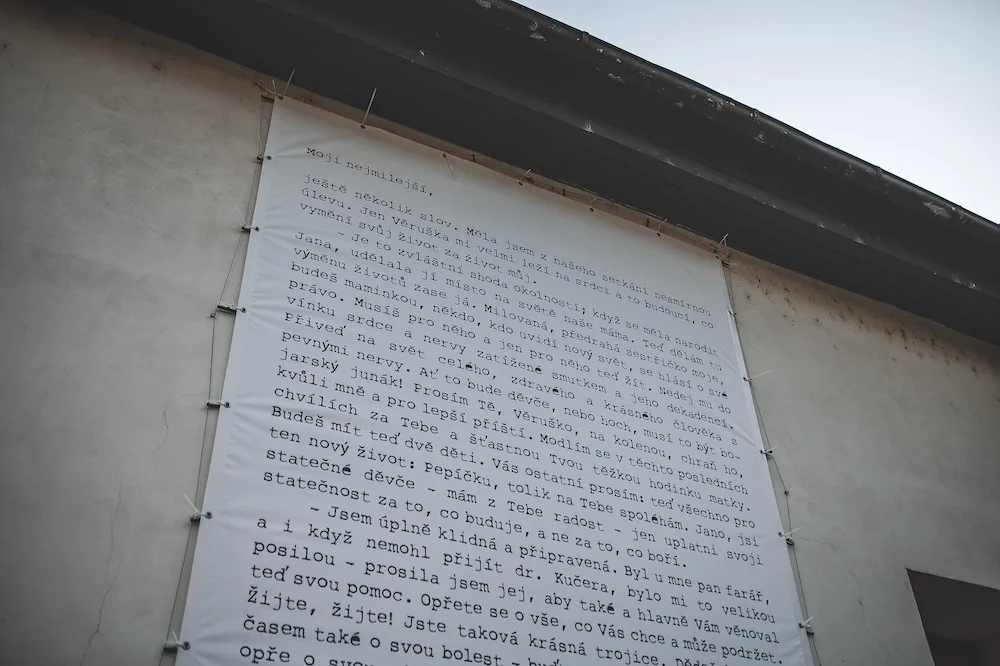 Moji nejmilejší,
ještě několik slov. Měla jsem z našeho setkání nesmírnou
úlevu. Jen Věruška mi velmi leží na srdci a to budoucí, co
vymění svůj život za život můj.
- Je to zvláštní shoda okolností; když se měla narodit
Jana, udělala jí místo na světě naše máma. Teď dělám tu
výměnu životů zase já. Milovaná, předrahá sestřičko moje,
budeš maminkou, někdo, kdo uvidí nový svět, se hlásí o své
právo. Musíš pro něho a jen pro něho teď žít. Nedej mu do
vínku srdce a nervy zatížené smutkem a jeho dekadencí.
Přiveď na svět celého, zdravého a krásného člověka s
pevnými nervy. Ať to bude děvče, nebo hoch, musí to být bo-
jarský junák! Prosím Tě, Věruško, na kolenou, chraň ho,
kvůli mně a pro lepší příští. Modlím se v těchto posledních
chvílích za Tebe a šťastnou Tvou těžkou hodinku matky.
Budeš mít teď dvě děti. Vás ostatní prosím: teď všechno pro
ten nový život: Pepíčku, tolik na Tebe spoléhám. Jano, jsi
statečné děvče - mám z Tebe radost - jen uplatni svoji
statečnost za to, co buduje, a ne za to, co boří.
- Jsem úplně klidná a připravená. Byl u mne pan farář,
a i když nemohl přijít dr. Kučera, bylo mi to velikou
posilou - prosila jsem jej, aby také a hlavně Vám věnoval
teď svou pomoc. Opřete se o vše, co Vás chce a může podržet.
Žijte, žijte! Jste taková krásná trojice.
časem také o svou bolest -
opře o svou